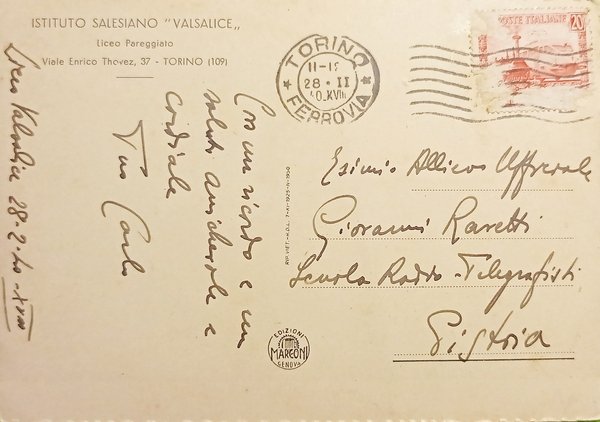 ISTITUTO SALESIANO "VALSALICE„
Liceo Pareggiato
Viale Enrico Thovez, 37 - TORINO (109)
TORINO
11-1
28 · II
40.XVIII
FERROVIA
POSTE ITALIANE
20
Con un ricordo e un
saluto amichevole e
cordiale
Tuo Carlo
Liceo Valsalice 28-2-40-XVIII
Esimio Allievo Ufficiale
Giovanni Ravetti
Scuola Radio-Telegrafisti
Pistoia
EDIZIONI
MARCONI
GENOVA